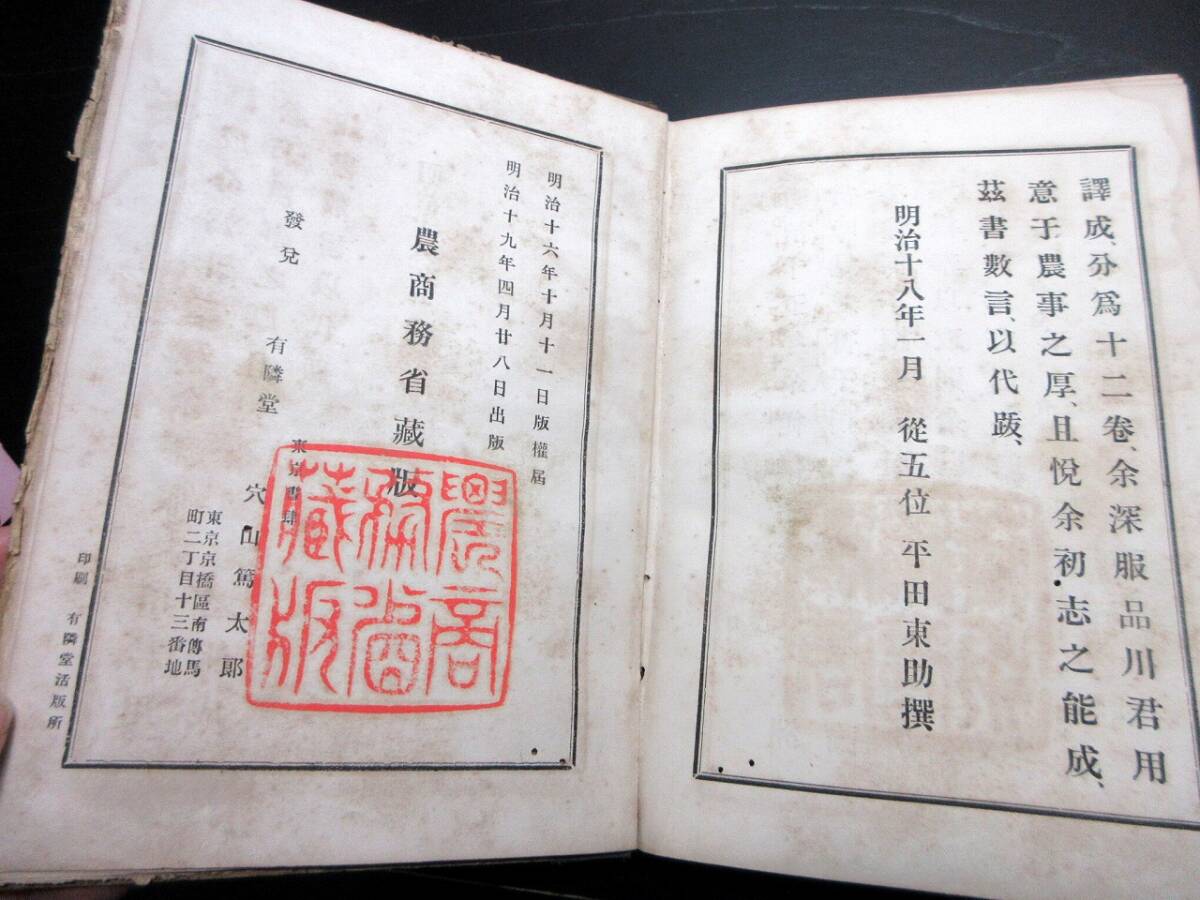 譯成、分爲十二卷、余深服品川君用
意于農事之厚、且悅余初志之能成、
茲書數言、以代跋、
明治十八年一月　從五位 平田東助撰
明治十六年十月十一日版權屆
明治十九年四月廿八日出版
農商務省藏版
農商
務省
藏版
東京書肆
發兌　有隣堂　穴山篤太郎
東京京橋區南傳馬
町二丁目十三番地
印刷　有隣堂活版所